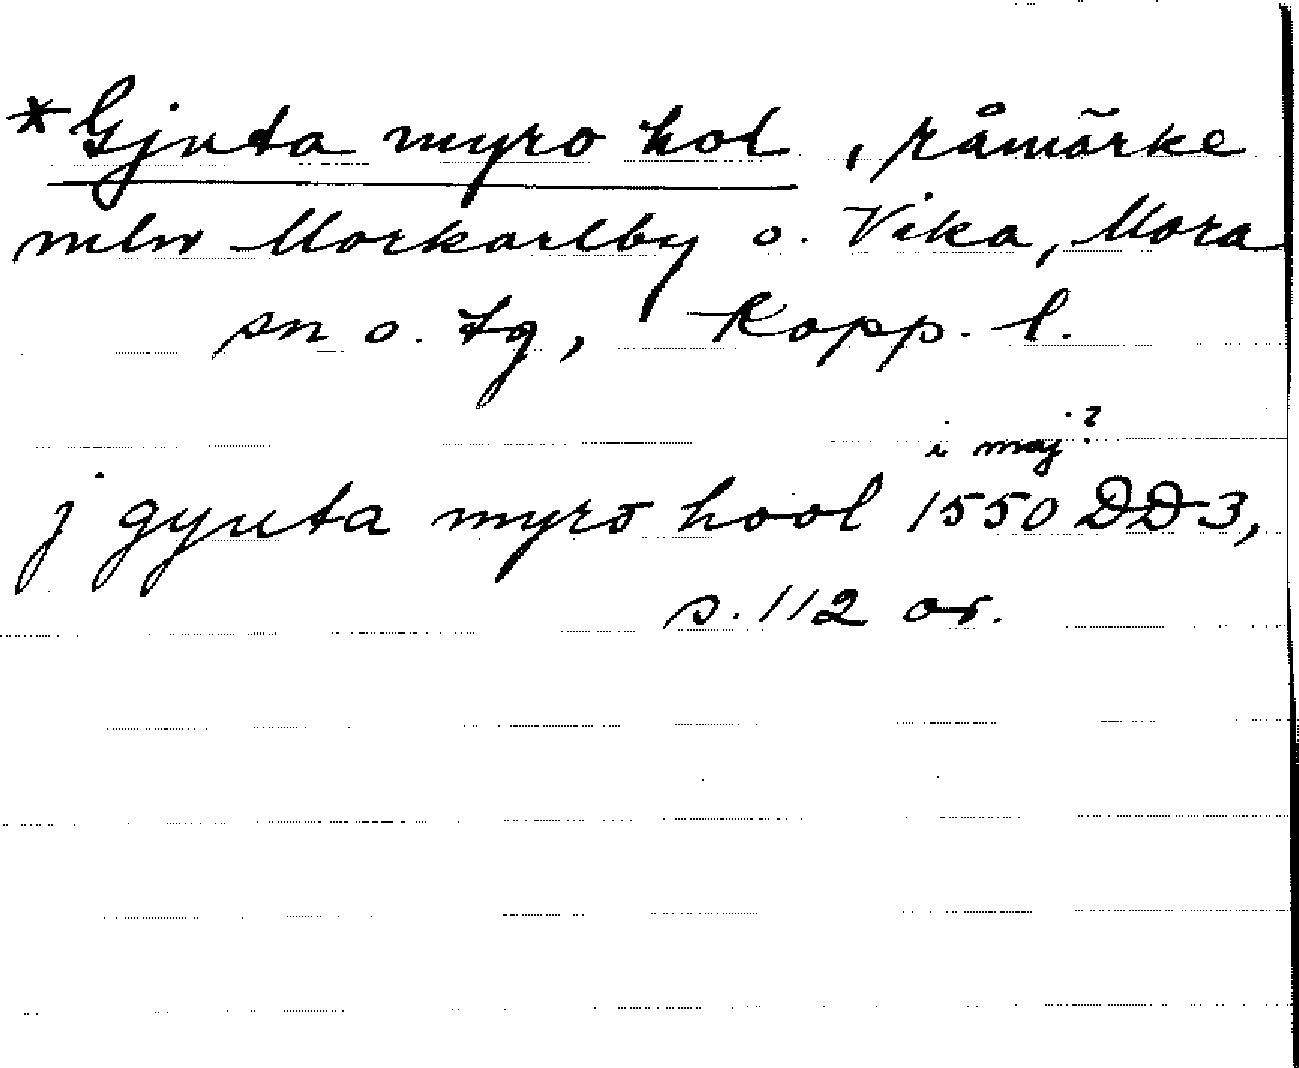 *Gjuta myro hol, råmärke
mln Morkarlby o. Vika, Mora
sn o. tg, Kopp. l.
i maj?
j gyuta myro hool 1550 DD 3,
s. 112 or.